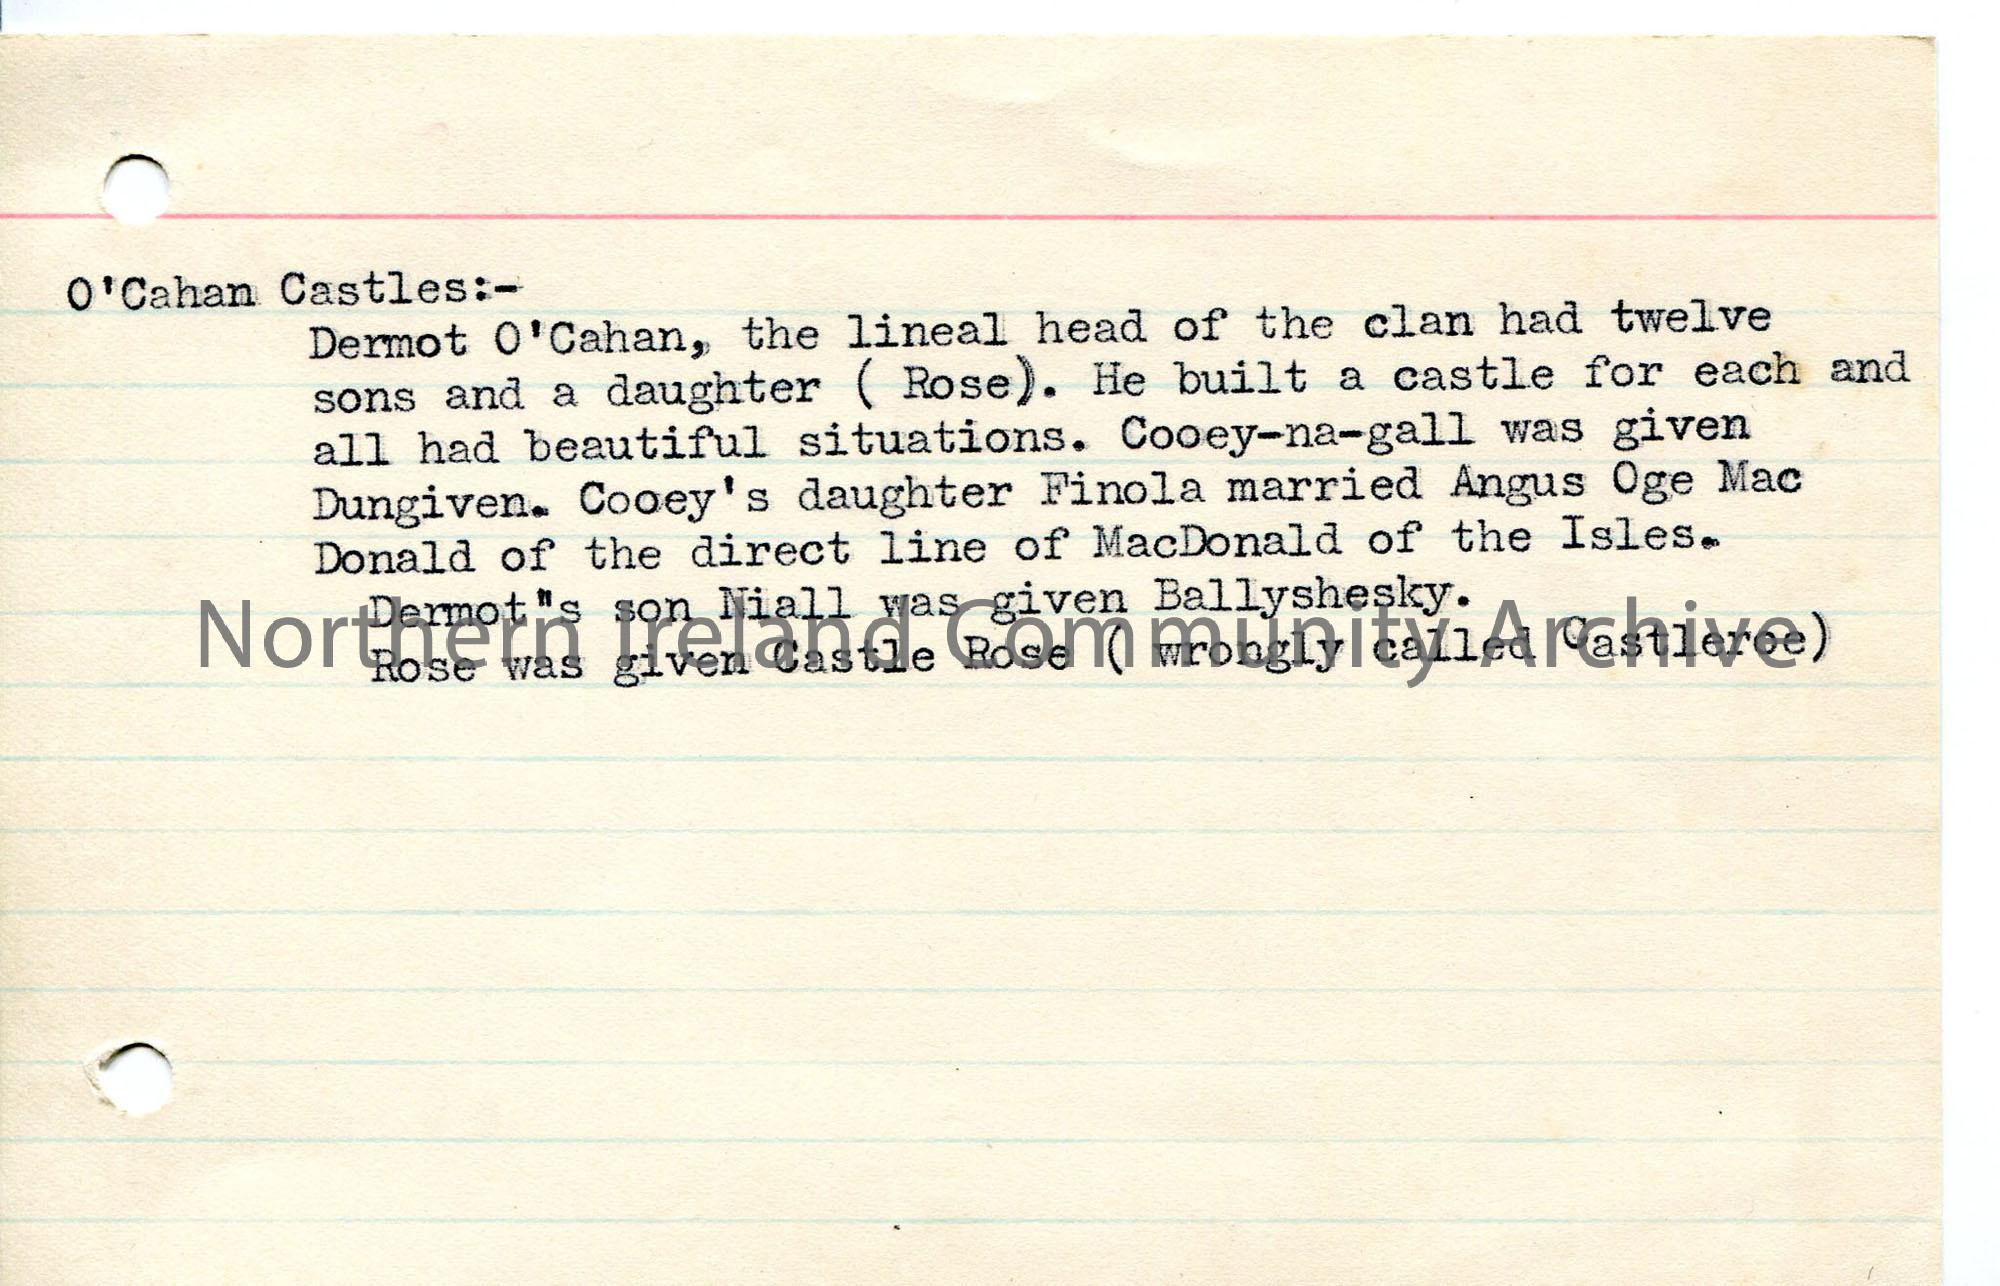 O'Cahan Castles:-
Dermot O'Cahan, the lineal head of the clan had twelve
sons and a daughter ( Rose). He built a castle for each and
all had beautiful situations. Cooey-na-gall was given
Dungiven. Cooey's daughter Finola married Angus Oge Mac
Donald of the direct line of MacDonald of the Isles.
Dermot"s son Niall was given Ballyshesky.
Northern Ireland Community Archive
Rose was given Castle Rose ( wrongly called Castleroe)